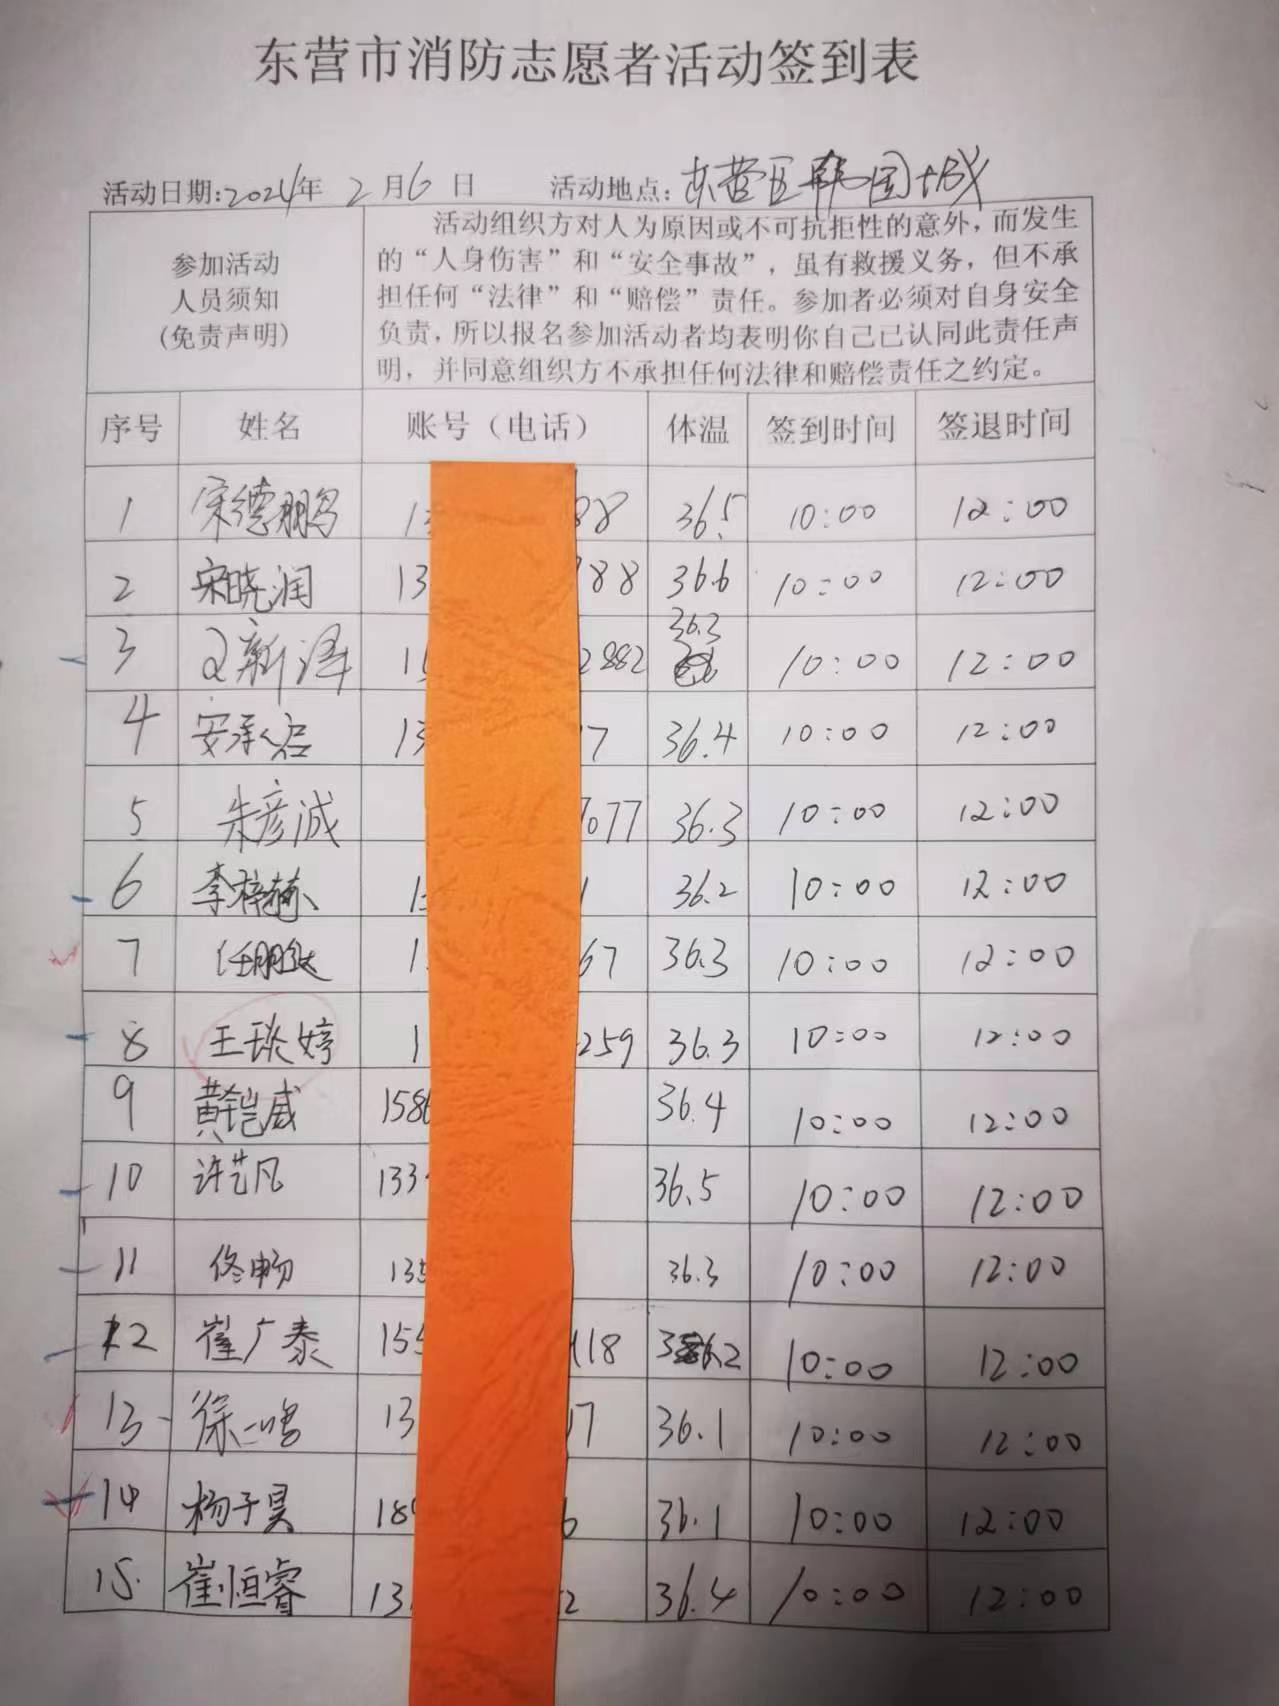 东营市消防志愿者活动签到表
活动日期:2024年 2月6日 活动地点:东营区韩国城
参加活动
人员须知
(免责声明)
活动组织方对人为原因或不可抗拒性的意外，而发生
的“人身伤害”和“安全事故”，虽有救援义务，但不承
担任何“法律”和“赔偿”责任。参加者必须对自身安全
负责，所以报名参加活动者均表明你自己已认同此责任声
明，并同意组织方不承担任何法律和赔偿责任之约定。
序号 姓名 账号（电话） 体温 签到时间 签退时间
1 宋德鹏 13 88 36.5 10:00 12:00
2 宋晓润 13 188 36.6 10:00 12:00
3 新泽 1 2882 36.3 10:00 12:00
4 安承启 13 17 36.4 10:00 12:00
5 朱彦诚 7077 36.3 10:00 12:00
6 李梓 1 1 36.2 10:00 12:00
7 任朋达 1 67 36.3 10:00 12:00
8 王琰婷 1 259 36.3 10:00 12:00
9 黄铠威 1586 36.4 10:00 12:00
10 许艺凡 133 36.5 10:00 12:00
11 佟畅 135 36.3 10:00 12:00
12 崔广泰 155 118 36.2 10:00 12:00
13 徐一鸣 13 17 36.1 10:00 12:00
14 杨子昊 189 6 36.1 10:00 12:00
15 崔恒睿 13 2 36.4 10:00 12:00